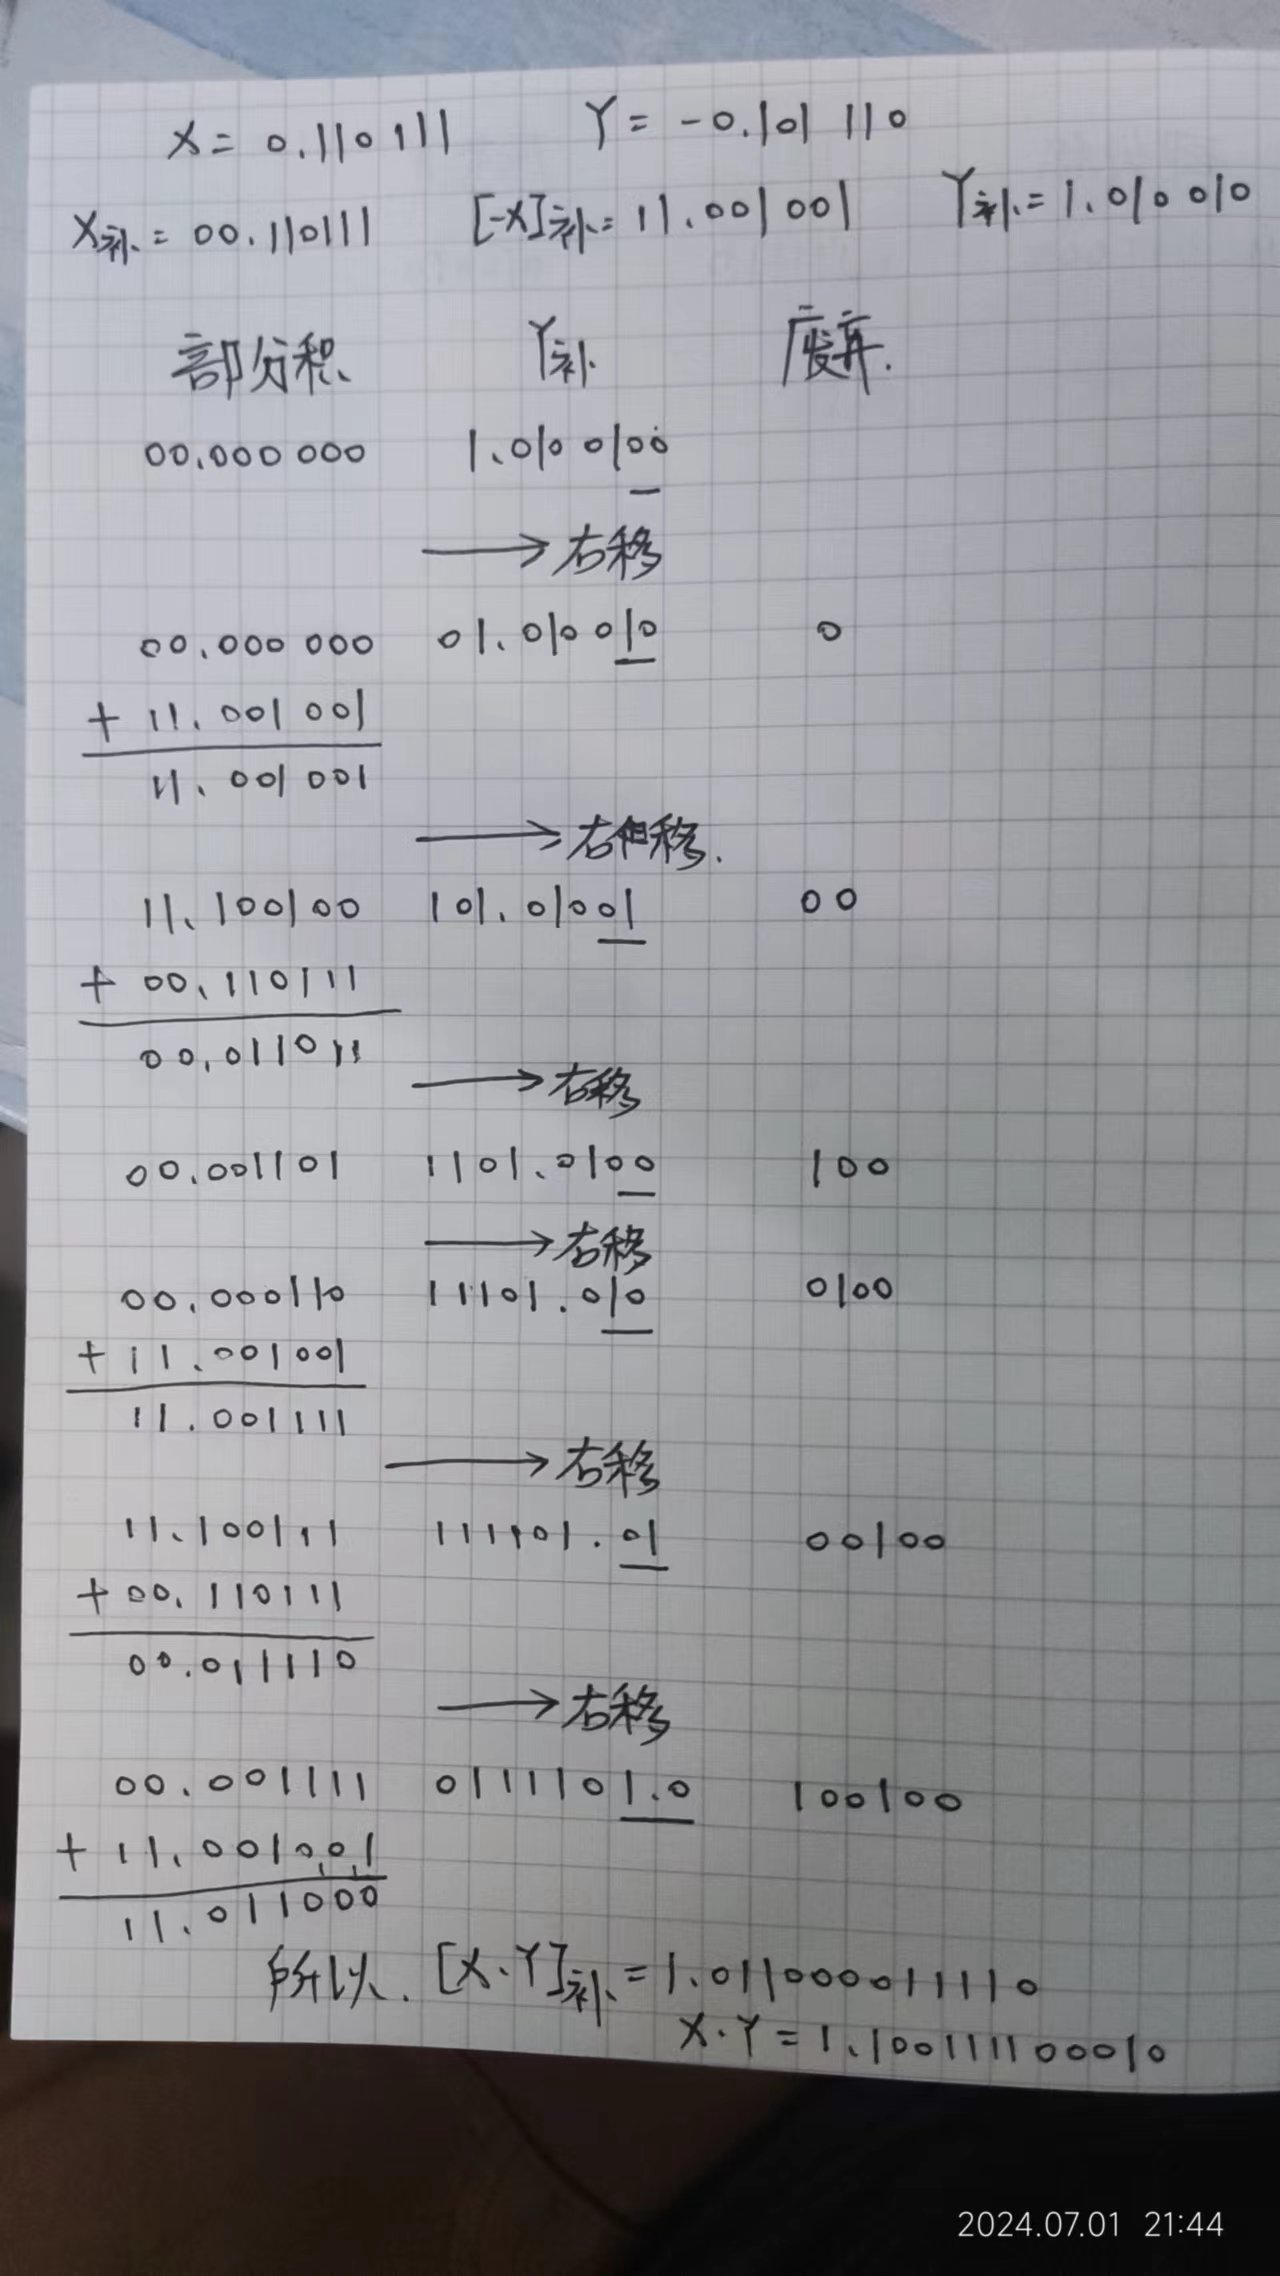 X = 0.110111 Y = -0.101 110
X补 = 00.110111 [-X]补 = 11.001 001 Y补 = 1.010 010
部分积 Y补 废弃.
00.000 000 1.010 0100
→ 右移
00.000 000 01.010010 0
+ 11.001 001
11.001 001
→ 右移.
11.100100 101.01001 00
+ 00.110111
00.011011
→ 右移
00.001101 1101.0100 100
→ 右移
00.000110 11101.010 0100
+ 11.001001
11.001111
→ 右移
11.100111 111101.01 00100
+ 00.110111
00.011110
→ 右移
00.001111 0111101.0 100100
+ 11.001001
11.011000
所以. [X.Y]补 = 1.011000011110
X.Y = 1.100111100010
2024.07.01 21:44